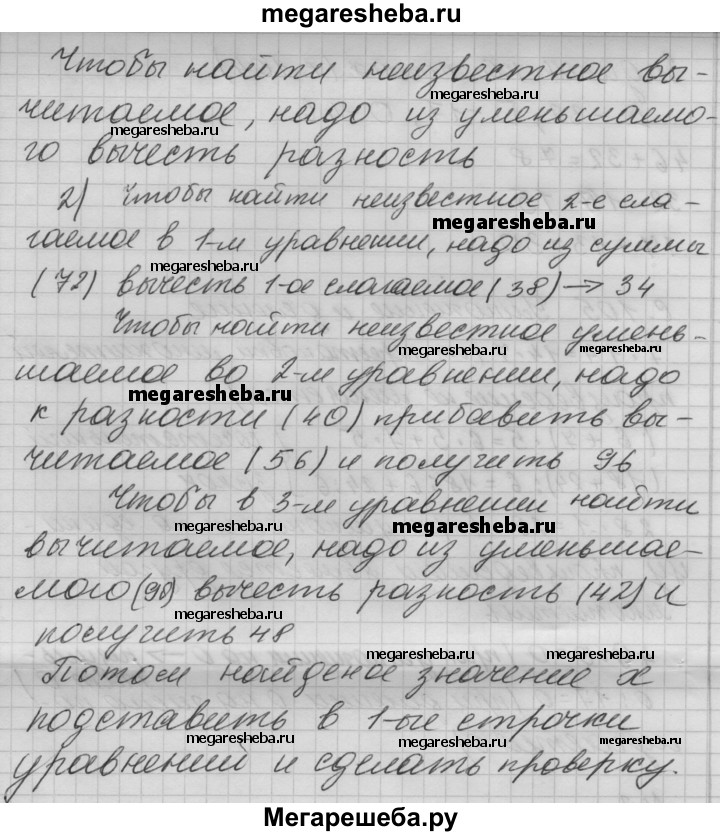 megaresheba.ru
Чтобы найти неизвестное вы-
megaresheba.ru
читаемое, надо из уменьшаемо-
megaresheba.ru megaresheba.ru
го вычесть разность
2) Чтобы найти неизвестное 2-е сла-
megaresheba.ru
гаемое в 1-м уравнении, надо из суммы
megaresheba.ru
(72) вычесть 1-ое слагаемое (38) → 34
Чтобы найти неизвестное умень-
megaresheba.ru megaresheba.ru
шаемое во 2-м уравнении, надо
megaresheba.ru
к разности (40) прибавить вы-
читаемое (56) и получить 96
Чтобы в 3-м уравнении найти
megaresheba.ru megaresheba.ru
вычитаемое, надо из уменьшае-
мого (90) вычесть разность (42) и
megaresheba.ru
получить 48
megaresheba.ru megaresheba.ru
Потом найденое значение x
подставить в 1-ые строчки
megaresheba.ru megaresheba.ru megaresheba.ru
уравнений и сделать проверку.
Мегарешеба.ру